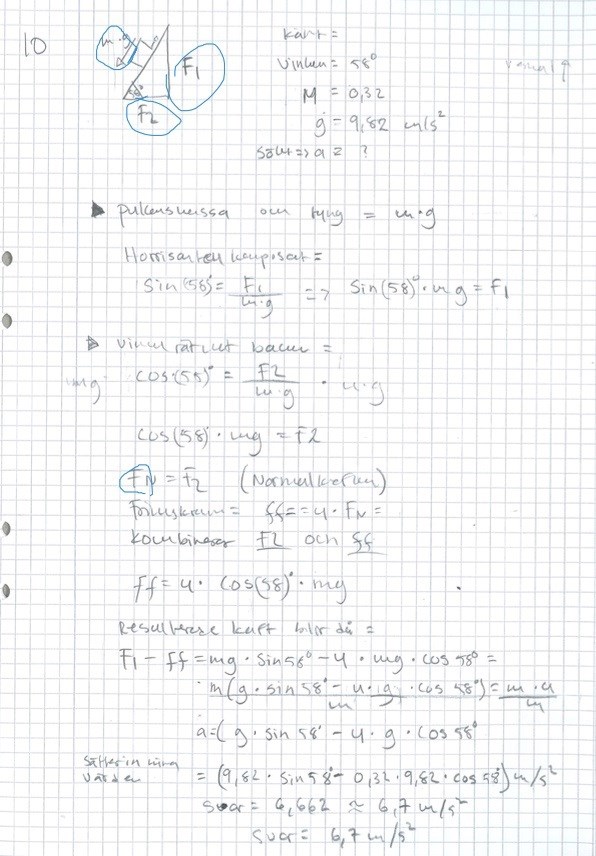 10
m·g
F1
F2
kraft =
Vinkeln = 58°
M = 0,32
g = 9,82 m/s²
Sökt => a = ?
pulkans massa och tyng = m·g
Horrisontell komposat =
Sin(58)° = F1 / m·g => Sin(58)°·mg = F1
vinkelrätnet backen =
mg
cos(55)° = F2 / m·g · m·g
cos(58)°·mg = F2
FN = F2 (Normalkraften)
ff = = u·FN =
kombinerar F2 och ff
ff = u· cos(58)°·mg
Resulterese kraft blir då =
F1 - ff = mg·sin58° - u·mg·cos58° =
m(g·sin58° - u·g·cos58°) = m·a
m m
a = (g·sin58° - u·g·cos58°
Sätter in
värden
= (9,82·sin58° - 0,32·9,82·cos58) m/s²
svar = 6,662 ≈ 6,7 m/s²
svar = 6,7 m/s²